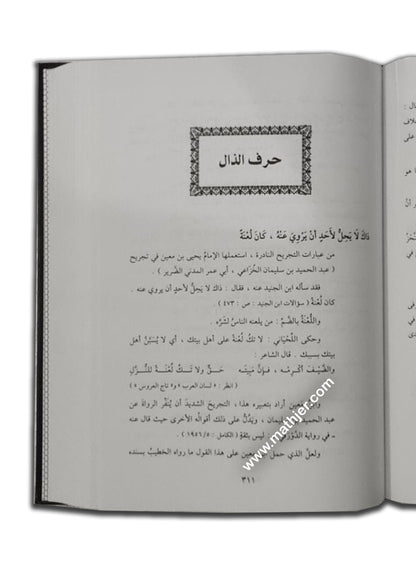 حرف الذال
ذاك لَا يَحِلُّ لأَحدٍ أنْ يَرْوِيَ عَنْهُ ، كَانَ لُعْنَةً
من عبارات التجريح النادرة ، استعملها الإمامُ يحيى بن معين في تجريح
عبد الحميد بن سليمان الخُزاعي ، أبي عمر المدني الضَّرير .
فقد سأله ابن الجنيد عنه ، فقال : ذاك لا يَحِلُّ لأحدٍ أن يروي عنه .
كان لُعْنَةً ( سؤالات ابن الجنيد : ص : ٤٧٣ ) .
واللُّعْنَةُ بالضَّمِّ : من يلعنه الناسُ لشرِّه .
وحكى اللِّحْيَاني : لا تكُ لُعْنَةً على أهل بيتك ، أي لا يُسَبَّنَّ أهل
بيتك بسببك . قال الشاعر :
والضَّيْفَ أكْرِمْه ، فإنَّ مَبِيتَه حَـقٌّ ولا تَـكُ لُعْنَـةً للنُّـزَّلِ
( انظر : « لسان العرب » و« تاج العروس » )
وابن معين أراد بتعبيره هذا ، التجريحَ الشديدَ أن يُنَفِّر الرواةَ عن
عبد الحميد بن سليمان ، ويَدُلُّ على ذلك أقوالُه الأخرى حيث قال عنه
ـ في رواية الدُّوري ـ : ليس بثقةٍ ( الكامل : ٥/ ١٩٥٦ ) .
ولعلَّ الذي حمل ابن معين على هذا القول ما رواه الخطيبُ بسنده
٣١١
www.mathjer.com